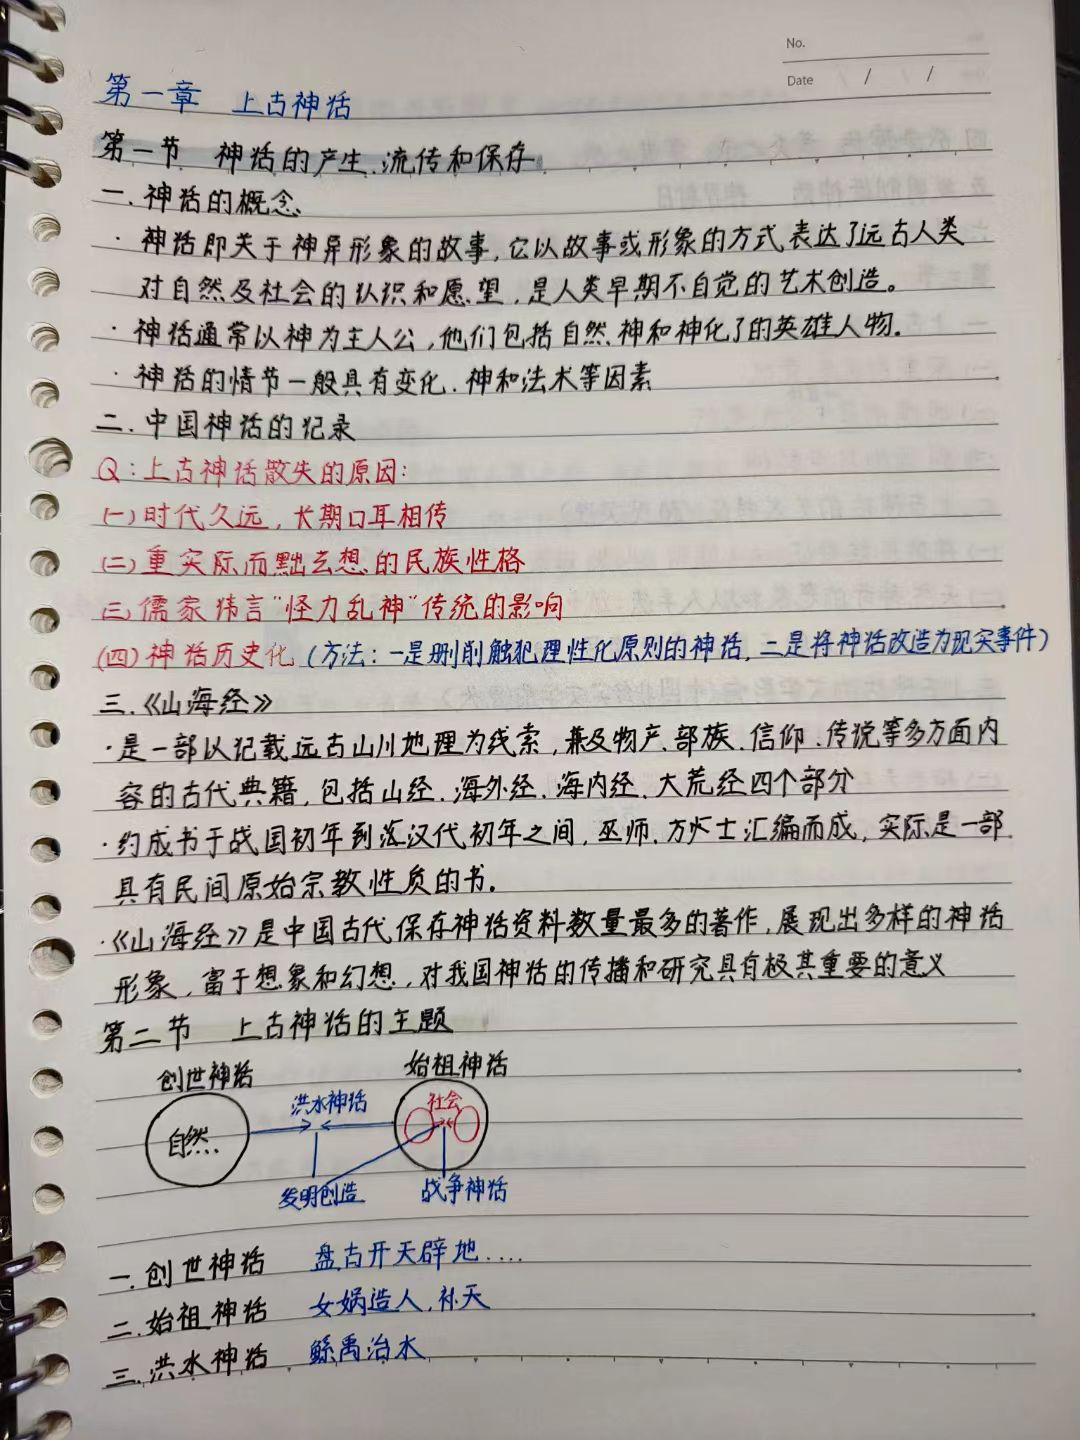 No.
Date / /
第一章 上古神话
第一节 神话的产生、流传和保存
一.神话的概念
·神话即关于神异形象的故事,它以故事或形象的方式表达了远古人类
对自然及社会的认识和愿望,是人类早期不自觉的艺术创造。
·神话通常以神为主人公,他们包括自然神和神化了的英雄人物.
·神话的情节一般具有变化、神和法术等因素
二.中国神话的记录
Q:上古神话散失的原因:
(一)时代久远,长期口耳相传
(二)重实际而黜玄想的民族性格
(三)儒家 言"怪力乱神"传统的影响
(四)神话历史化(方法:一是删削触犯理性化原则的神话,二是将神话改造为现实事件)
三.《山海经》
·是一部以记载远古山川地理为线索,兼及物产、部族、信仰、传说等多方面内
容的古代典籍,包括山经、海外经、海内经、大荒经四个部分
·约成书于战国初年到 汉代初年之间,巫师、方 士汇编而成,实际是一部
具有民间原始宗教性质的书.
·《山海经》是中国古代保存神话资料数量最多的著作,展现出多样的神话
形象,富于想象和幻想,对我国神话的传播和研究具有极其重要的意义
第二节 上古神话的主题
创世神话 始祖神话
洪水神话 社会
自然
发明创造 战争神话
一.创世神话 盘古开天辟地....
二.始祖神话 女娲造人,补天
三.洪水神话 鲧禹治水